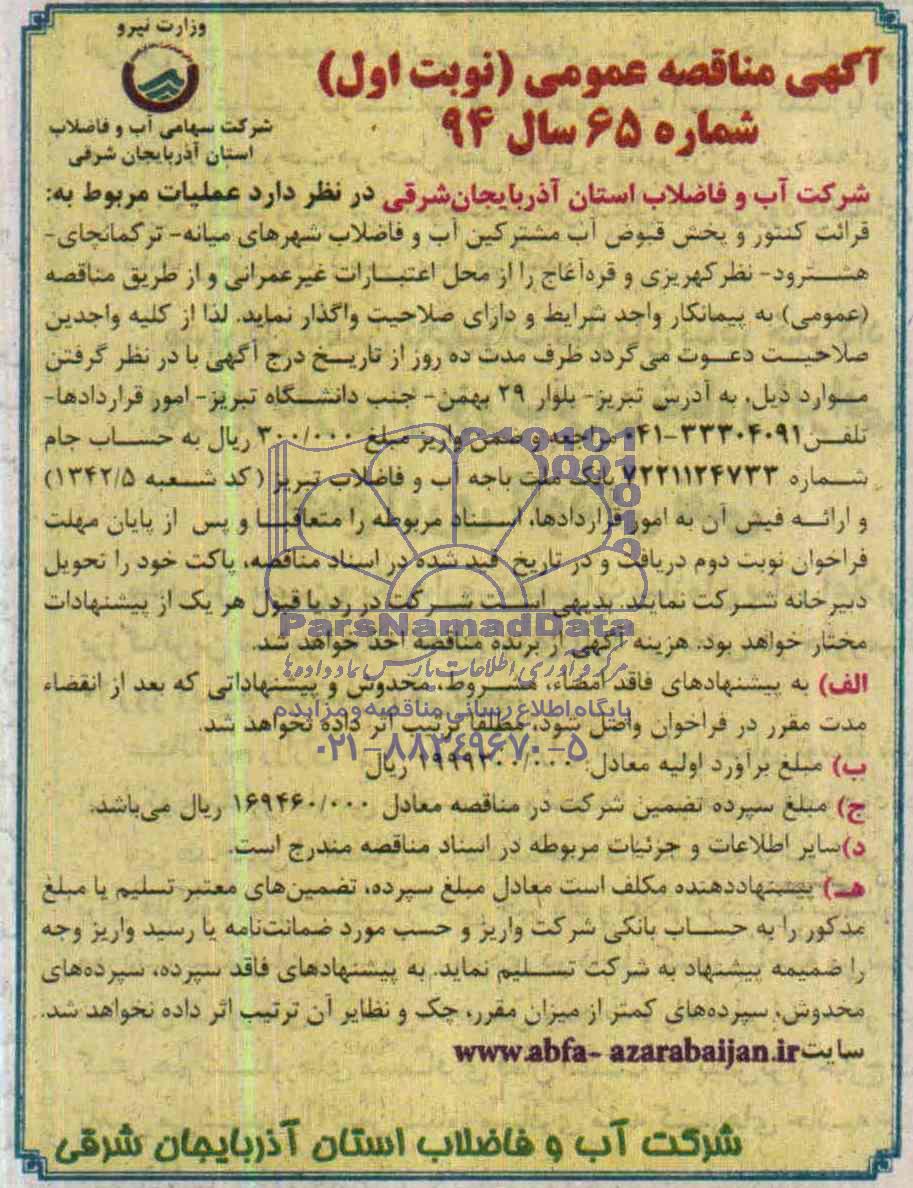 وزارت نیرو
شرکت سهامی آب و فاضلاب
استان آذربایجان شرقی
آگهی مناقصه عمومی (نوبت اول)
شماره ۶۵ سال ۹۴
شرکت آب و فاضلاب استان آذربایجان‌شرقی در نظر دارد عملیات مربوط به:
قرائت کنتور و پخش قبوض آب مشترکین آب و فاضلاب شهرهای میانه- ترکمانچای-
هشترود- نظرکهریزی و قره‌آغاج را از محل اعتبارات غیرعمرانی و از طریق مناقصه
(عمومی) به پیمانکار واجد شرایط و دارای صلاحیت واگذار نماید. لذا از کلیه واجدین
صلاحیت دعوت می‌گردد ظرف مدت ده روز از تاریخ درج آگهی با در نظر گرفتن
موارد ذیل، به آدرس تبریز- بلوار ۲۹ بهمن- جنب دانشگاه تبریز- امور قراردادها-
تلفن ۳۳۳۰۴۰۹۱-۰۴۱ مراجعه و ضمن واریز مبلغ ۳۰۰/۰۰۰ ریال به حساب جام
شماره ۷۲۲۱۱۲۴۷۳۳ بانک ملت باجه آب و فاضلاب تبریز (کد شعبه ۱۳۴۲/۵)
و ارائه فیش آن به امور قراردادها، اسناد مربوطه را متعاقبا و پس از پایان مهلت
فراخوان نوبت دوم دریافت و در تاریخ قید شده در اسناد مناقصه، پاکت خود را تحویل
دبیرخانه شرکت نمایند. بدیهی است شرکت در رد یا قبول هر یک از پیشنهادات
مختار خواهد بود. هزینه آگهی از برنده مناقصه اخذ خواهد شد.
الف) به پیشنهادهای فاقد امضاء، مشروط، مخدوش و پیشنهاداتی که بعد از انقضاء
مدت مقرر در فراخوان واصل شود، مطلقا ترتیب اثر داده نخواهد شد.
ب) مبلغ برآورد اولیه معادل: ریال
ج) مبلغ سپرده تضمین شرکت در مناقصه معادل ۱۶۹۴۶۰/۰۰۰ ریال می‌باشد.
د)سایر اطلاعات و جزئیات مربوطه در اسناد مناقصه مندرج است.
هـ) پیشنهاددهنده مکلف است معادل مبلغ سپرده، تضمین‌های معتبر تسلیم یا مبلغ
مذکور را به حساب بانکی شرکت واریز و حسب مورد ضمانت‌نامه یا رسید واریز وجه
را ضمیمه پیشنهاد به شرکت تسلیم نماید. به پیشنهادهای فاقد سپرده، سپرده‌های
مخدوش، سپرده‌های کمتر از میزان مقرر، چک و نظایر آن ترتیب اثر داده نخواهد شد.
سایت www.abfa- azarabaijan.ir
شرکت آب و فاضلاب استان آذربایجان شرقی
ParsNamadData
مرکز فرآوری اطلاعات پارس نماد داده‌ها
پایگاه اطلاع رسانی مناقصه و مزایده
۰۲۱-۸۸۳۴۹۶۷۰-۵